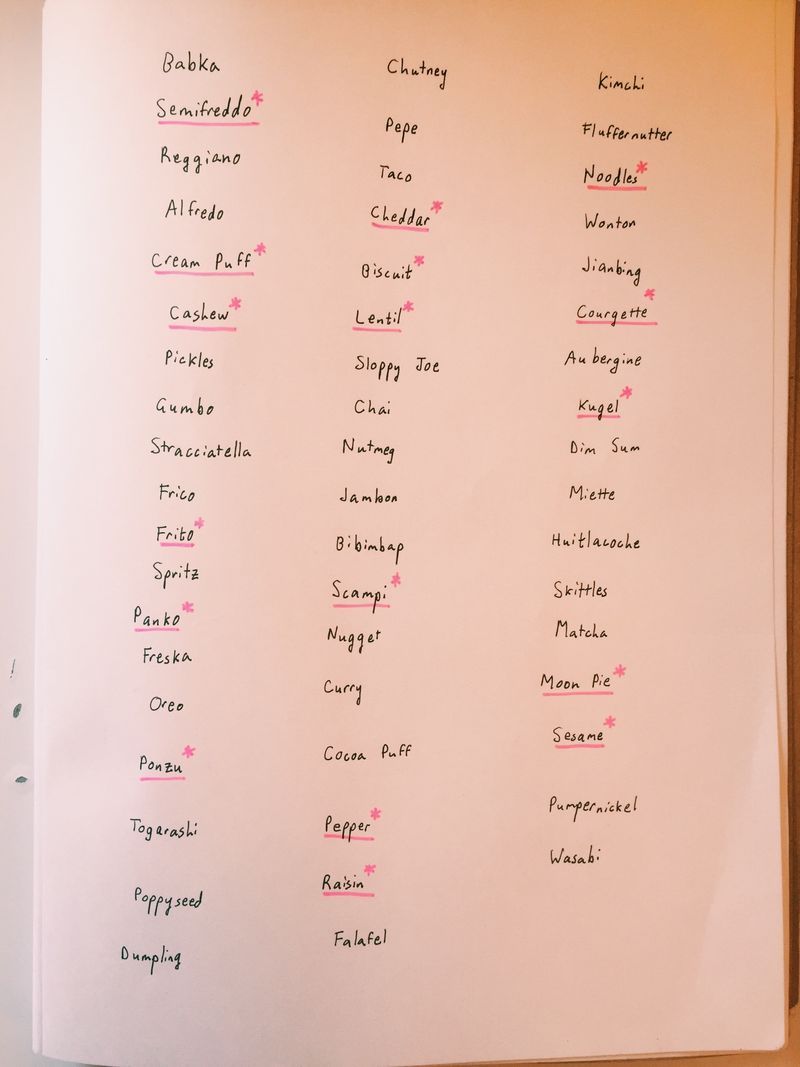 Babka
Semifreddo*
Reggiano
Alfredo
Cream Puff*
Cashew*
Pickles
Gumbo
Stracciatella
Frico
Frito*
Spritz
Panko*
Freska
Oreo
Ponzu*
Togarashi
Poppyseed
Dumpling
Chutney
Pepe
Taco
Cheddar*
Biscuit*
Lentil*
Sloppy Joe
Chai
Nutmeg
Jambon
Bibimbap
Scampi*
Nugget
Curry
Cocoa Puff
Pepper*
Raisin*
Falafel
Kimchi
Fluffernutter
Noodles*
Wonton
Jianbing
Courgette*
Aubergine
Kugel*
Dim Sum
Miette
Huitlacoche
Skittles
Matcha
Moon Pie*
Sesame*
Pumpernickel
Wasabi